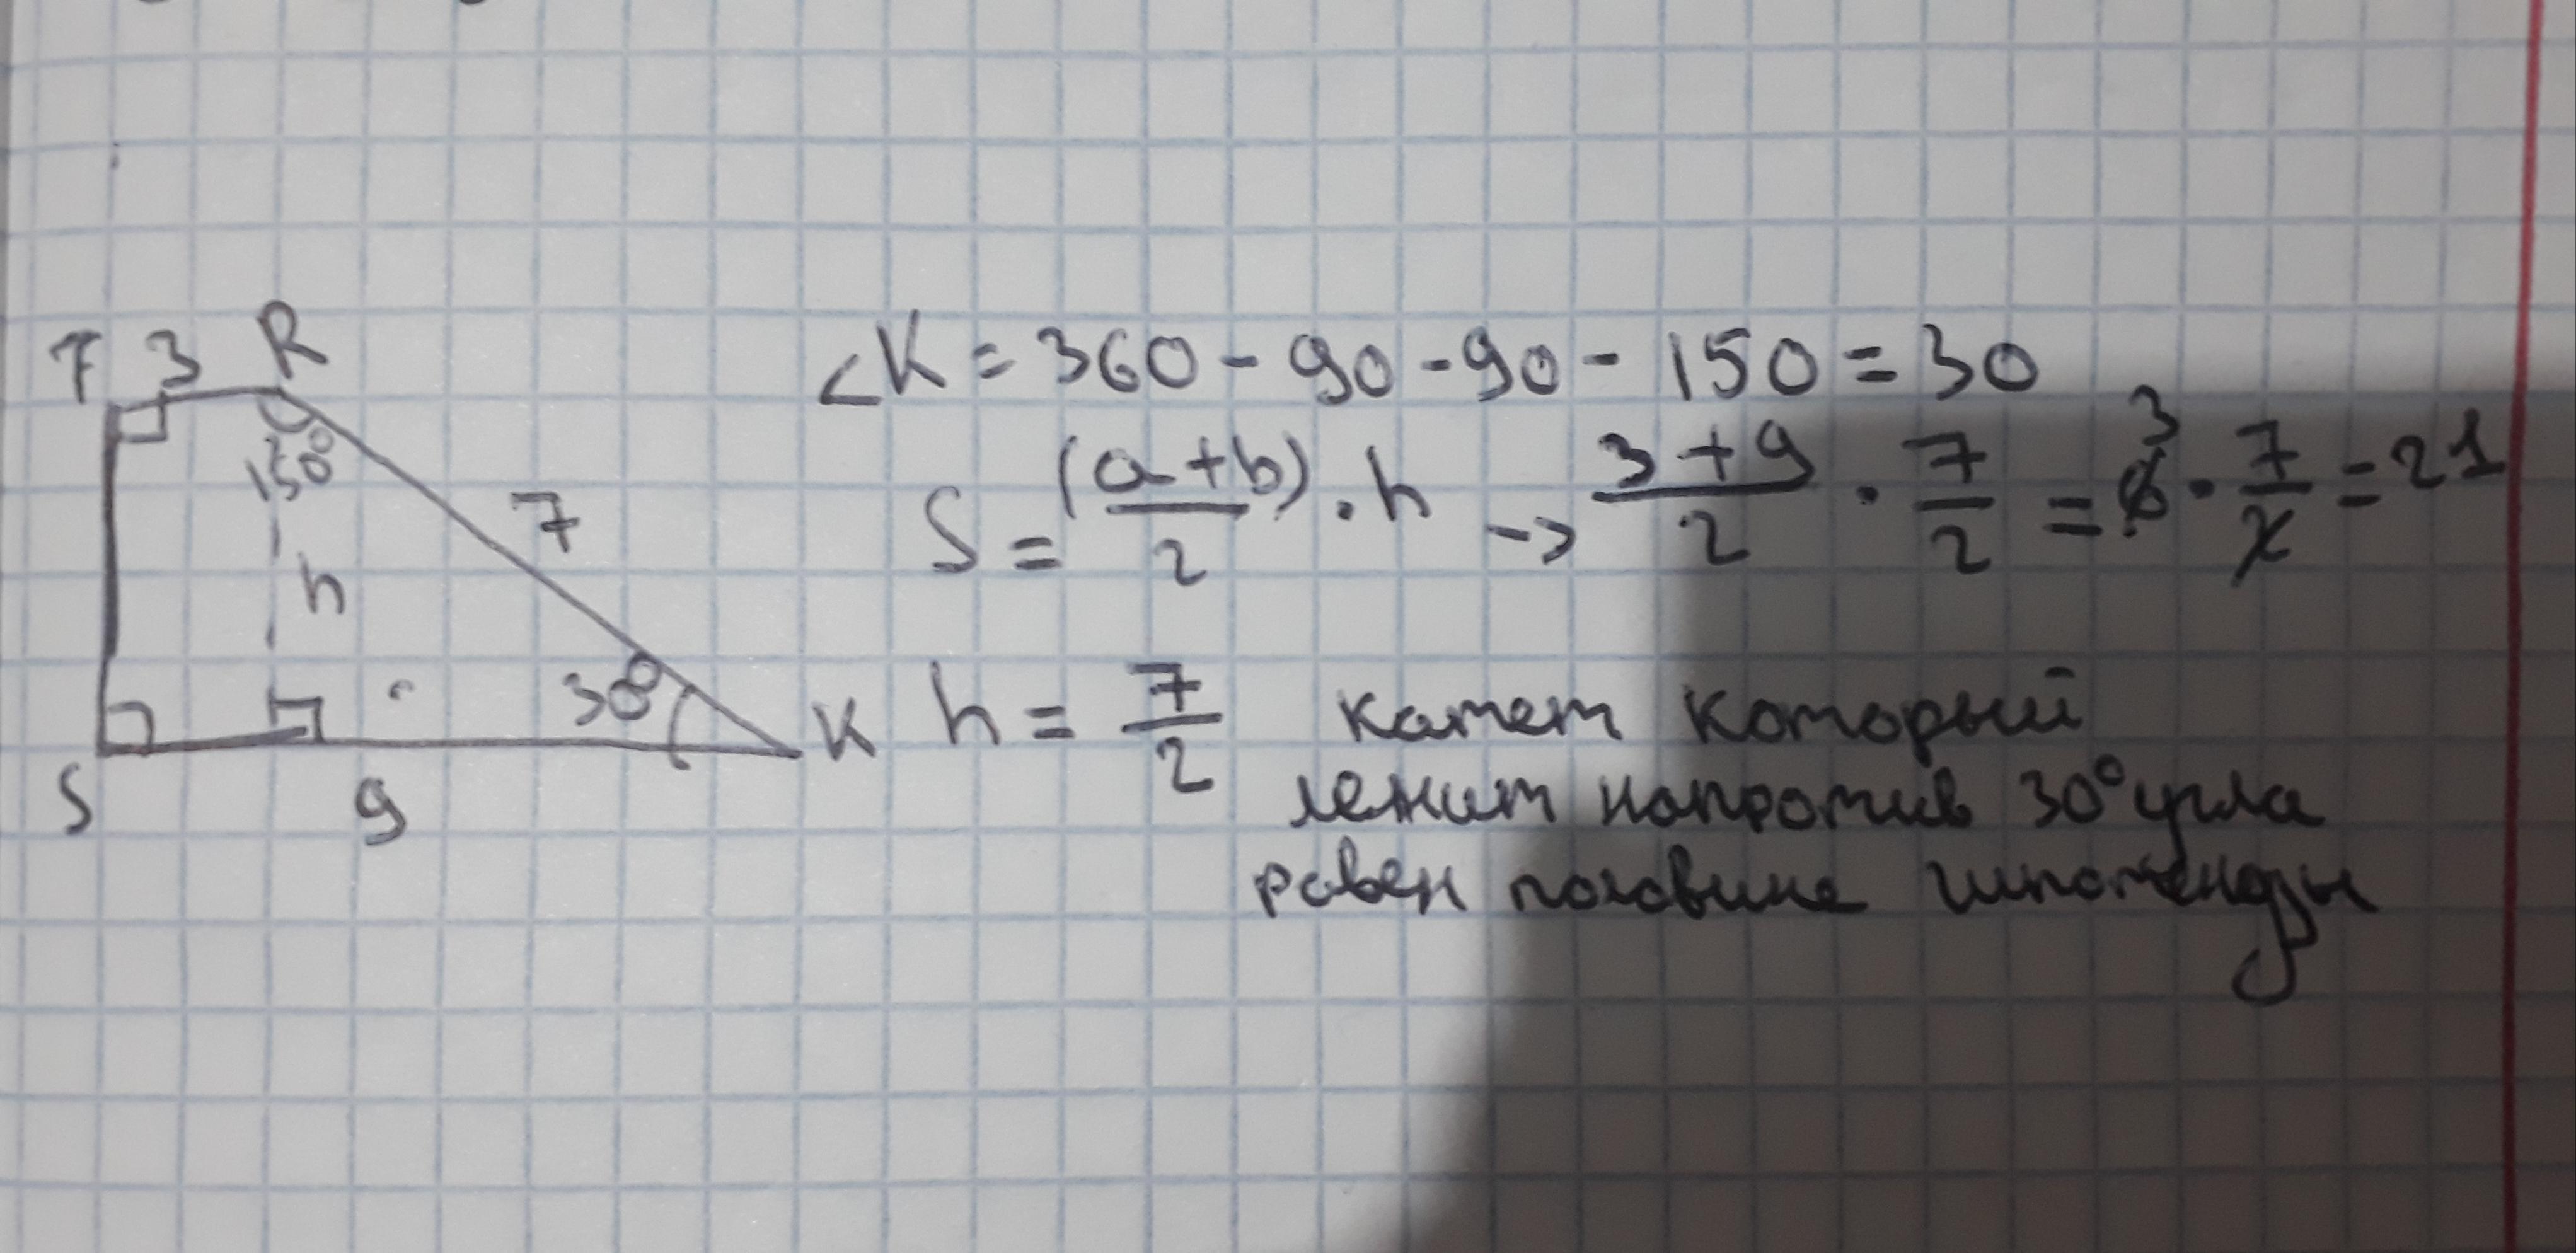 T 3 R
150°
7
h
30°
S 9 K
∠K = 360 - 90 - 90 - 150 = 30
S = (a+b)/2 · h -> 3+9/2 · 7/2 = 6 3 · 7/2 = 21
h = 7/2 катет который
лежит напротив 30° угла
равен половине гипотенузы